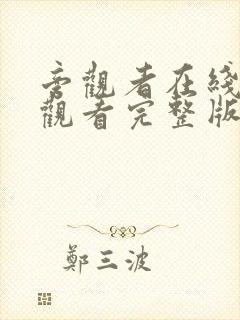 旁觀者在綫
觀看完整版
鄭三波